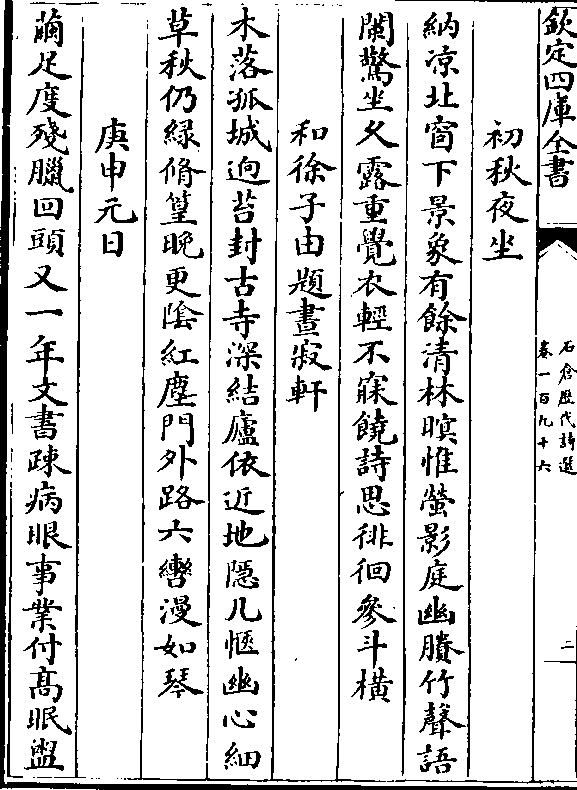 欽定四庫全書
石倉歷代詩選
卷一百九十六
二
初秋夜坐
納凉北窗下景象有餘清林暝惟螢影庭幽賸竹聲語
闌驚坐久露重覺衣輕不寐饒詩思徘徊參斗橫
和徐子由題晝寂軒
木落孤城逈苔封古寺深結廬依近地隠几愜幽心細
草秋仍緑脩篁晚更隂紅塵門外路六轡漫如琴
庚申元日
繭足度殘臘回頭又一年文書疎病眼事業付髙眠盥